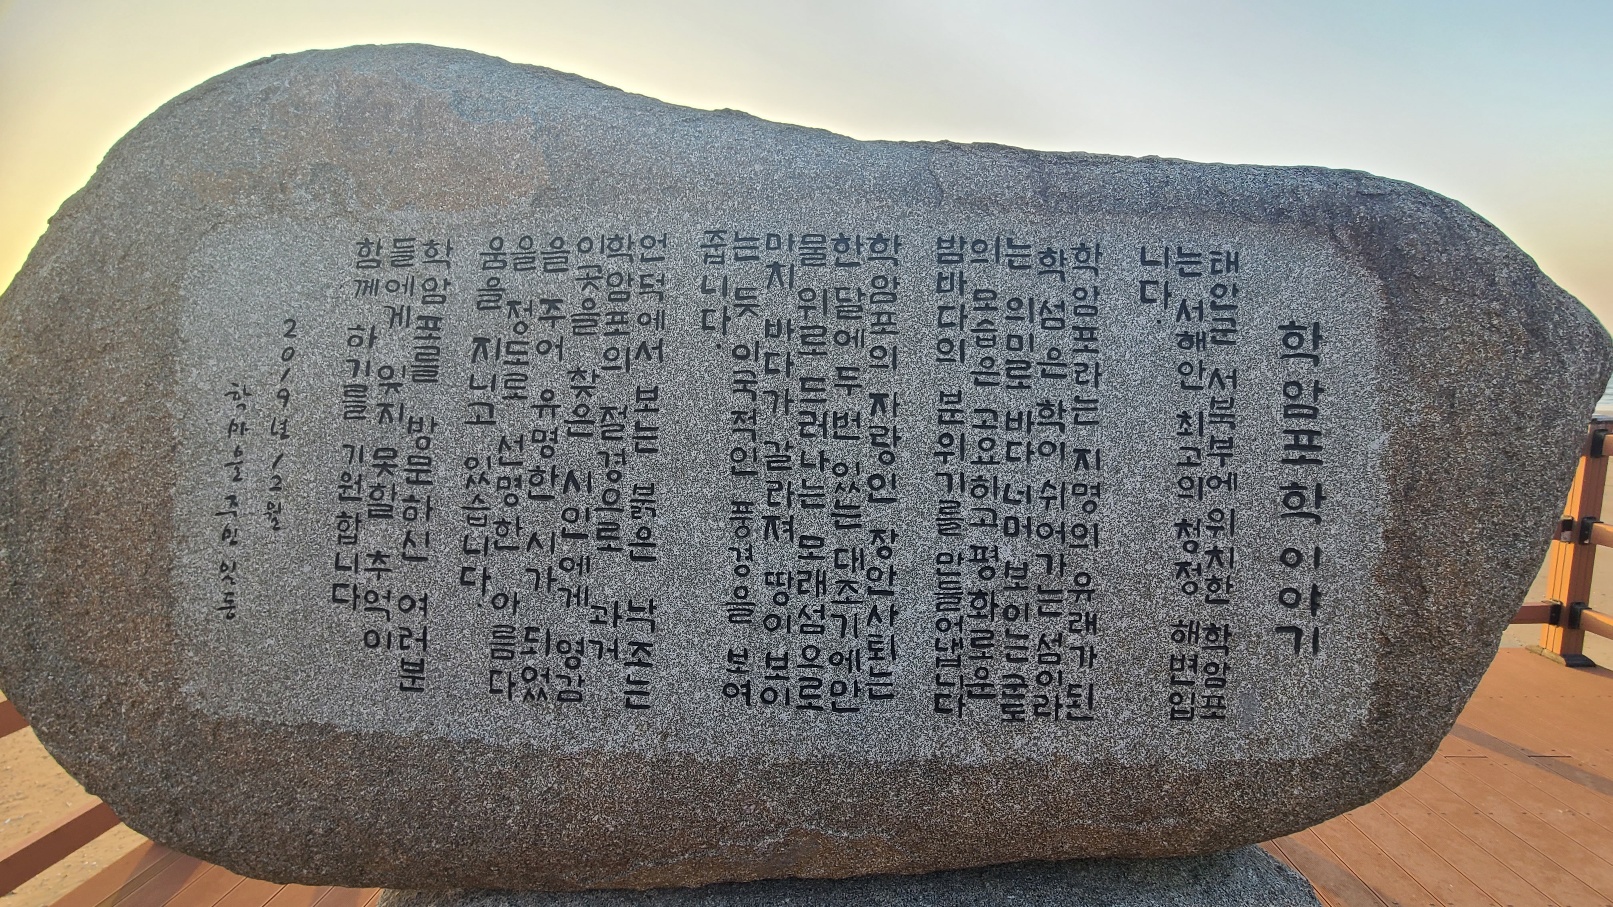 학암포학 이야기
태안군 서북부에 위치한 학암포
는 서해안 최고의 청정 해변입
니다.
학암포라는 지명의 유래가 된
학섬은 학이 쉬어가는 섬이라
는 의미로 바다 너머 보이는 곳
의 모습은 고요하고 평화로운
밤바다의 분위기를 만들어냅니다
학암포의 자랑인 장안사퇴는
한 달에 두번 있는 대조기에만
물 위로 드러나는 모래섬으로
마치 바다가 갈라져 땅이 보이
는 듯 이국적인 풍경을 보여
줍니다.
언덕에서 보는 붉은 낙조는
학암포의 절경으로 과거
이곳을 찾은 시인에게 영감
을 주어 유명한 시가 되었
을 정도로 선명한 아름다
움을 지니고 있습니다.
학암포를 방문하신 여러분
들에게 잊지 못할 추억이
함께 하기를 기원합니다
2019년 12월
학마을 주민일동